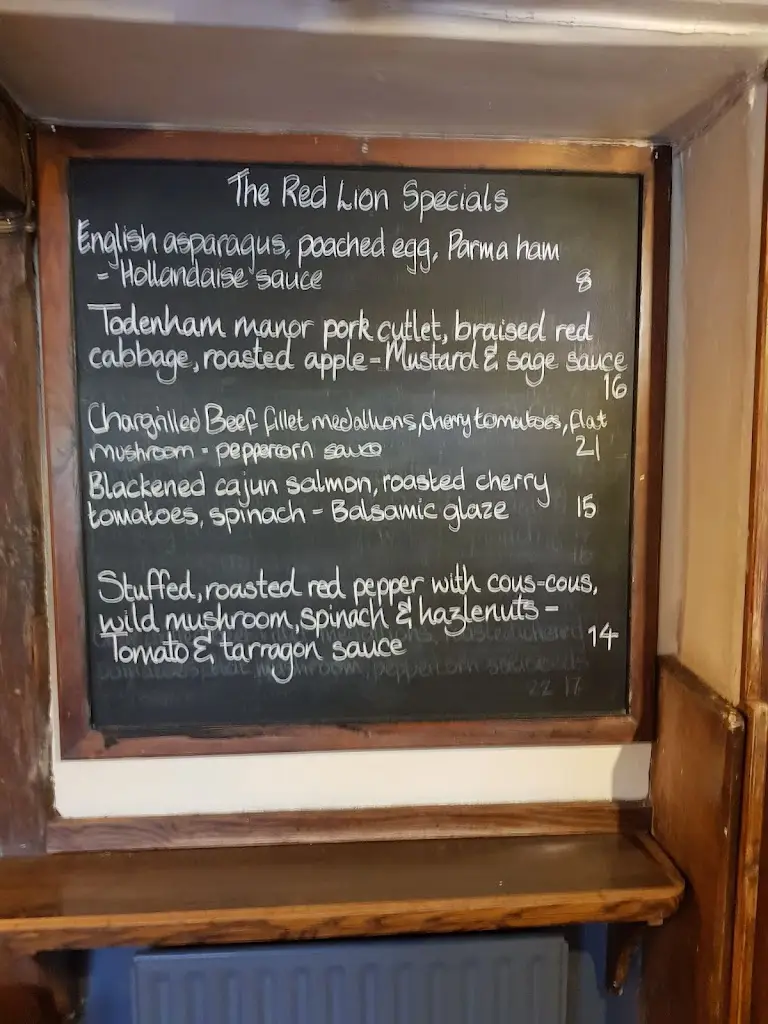 The Red Lion Specials
English asparagus, poached egg, Parma ham
- Hollandaise sauce 8
Todenham manor pork cutlet, braised red
cabbage, roasted apple - Mustard & sage sauce
16
Chargrilled Beef fillet medallions, cherry tomatoes, flat
mushroom - peppercorn sauce 21
Blackened cajun salmon, roasted cherry
tomatoes, spinach - Balsamic glaze 15
Stuffed, roasted red pepper with cous-cous,
wild mushroom, spinach & hazlenuts -
Tomato & tarragon sauce 14